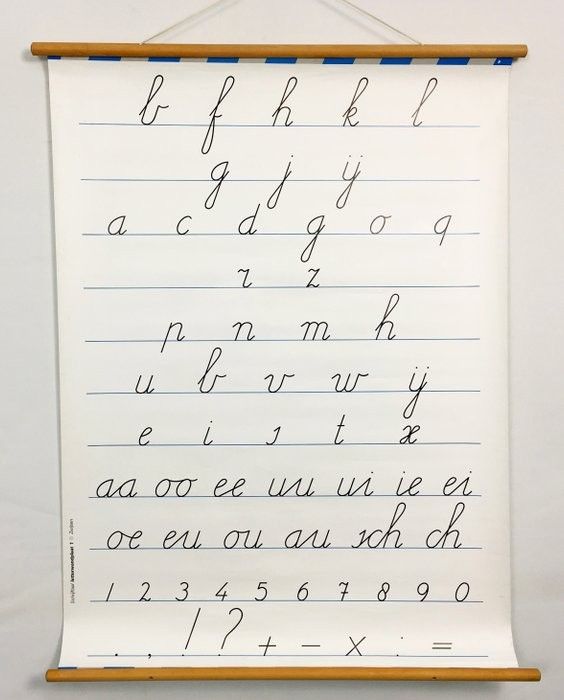 b f h k l
g j ij
a c d g o q
r z
p n m h
u b v w ij
e i s t x
aa oo ee uu ui ie ei
oe eu ou au sch ch
1 2 3 4 5 6 7 8 9 0
. , ! ? + - x : =
Schrijfster letterwandplaat 1 © Zwijsen